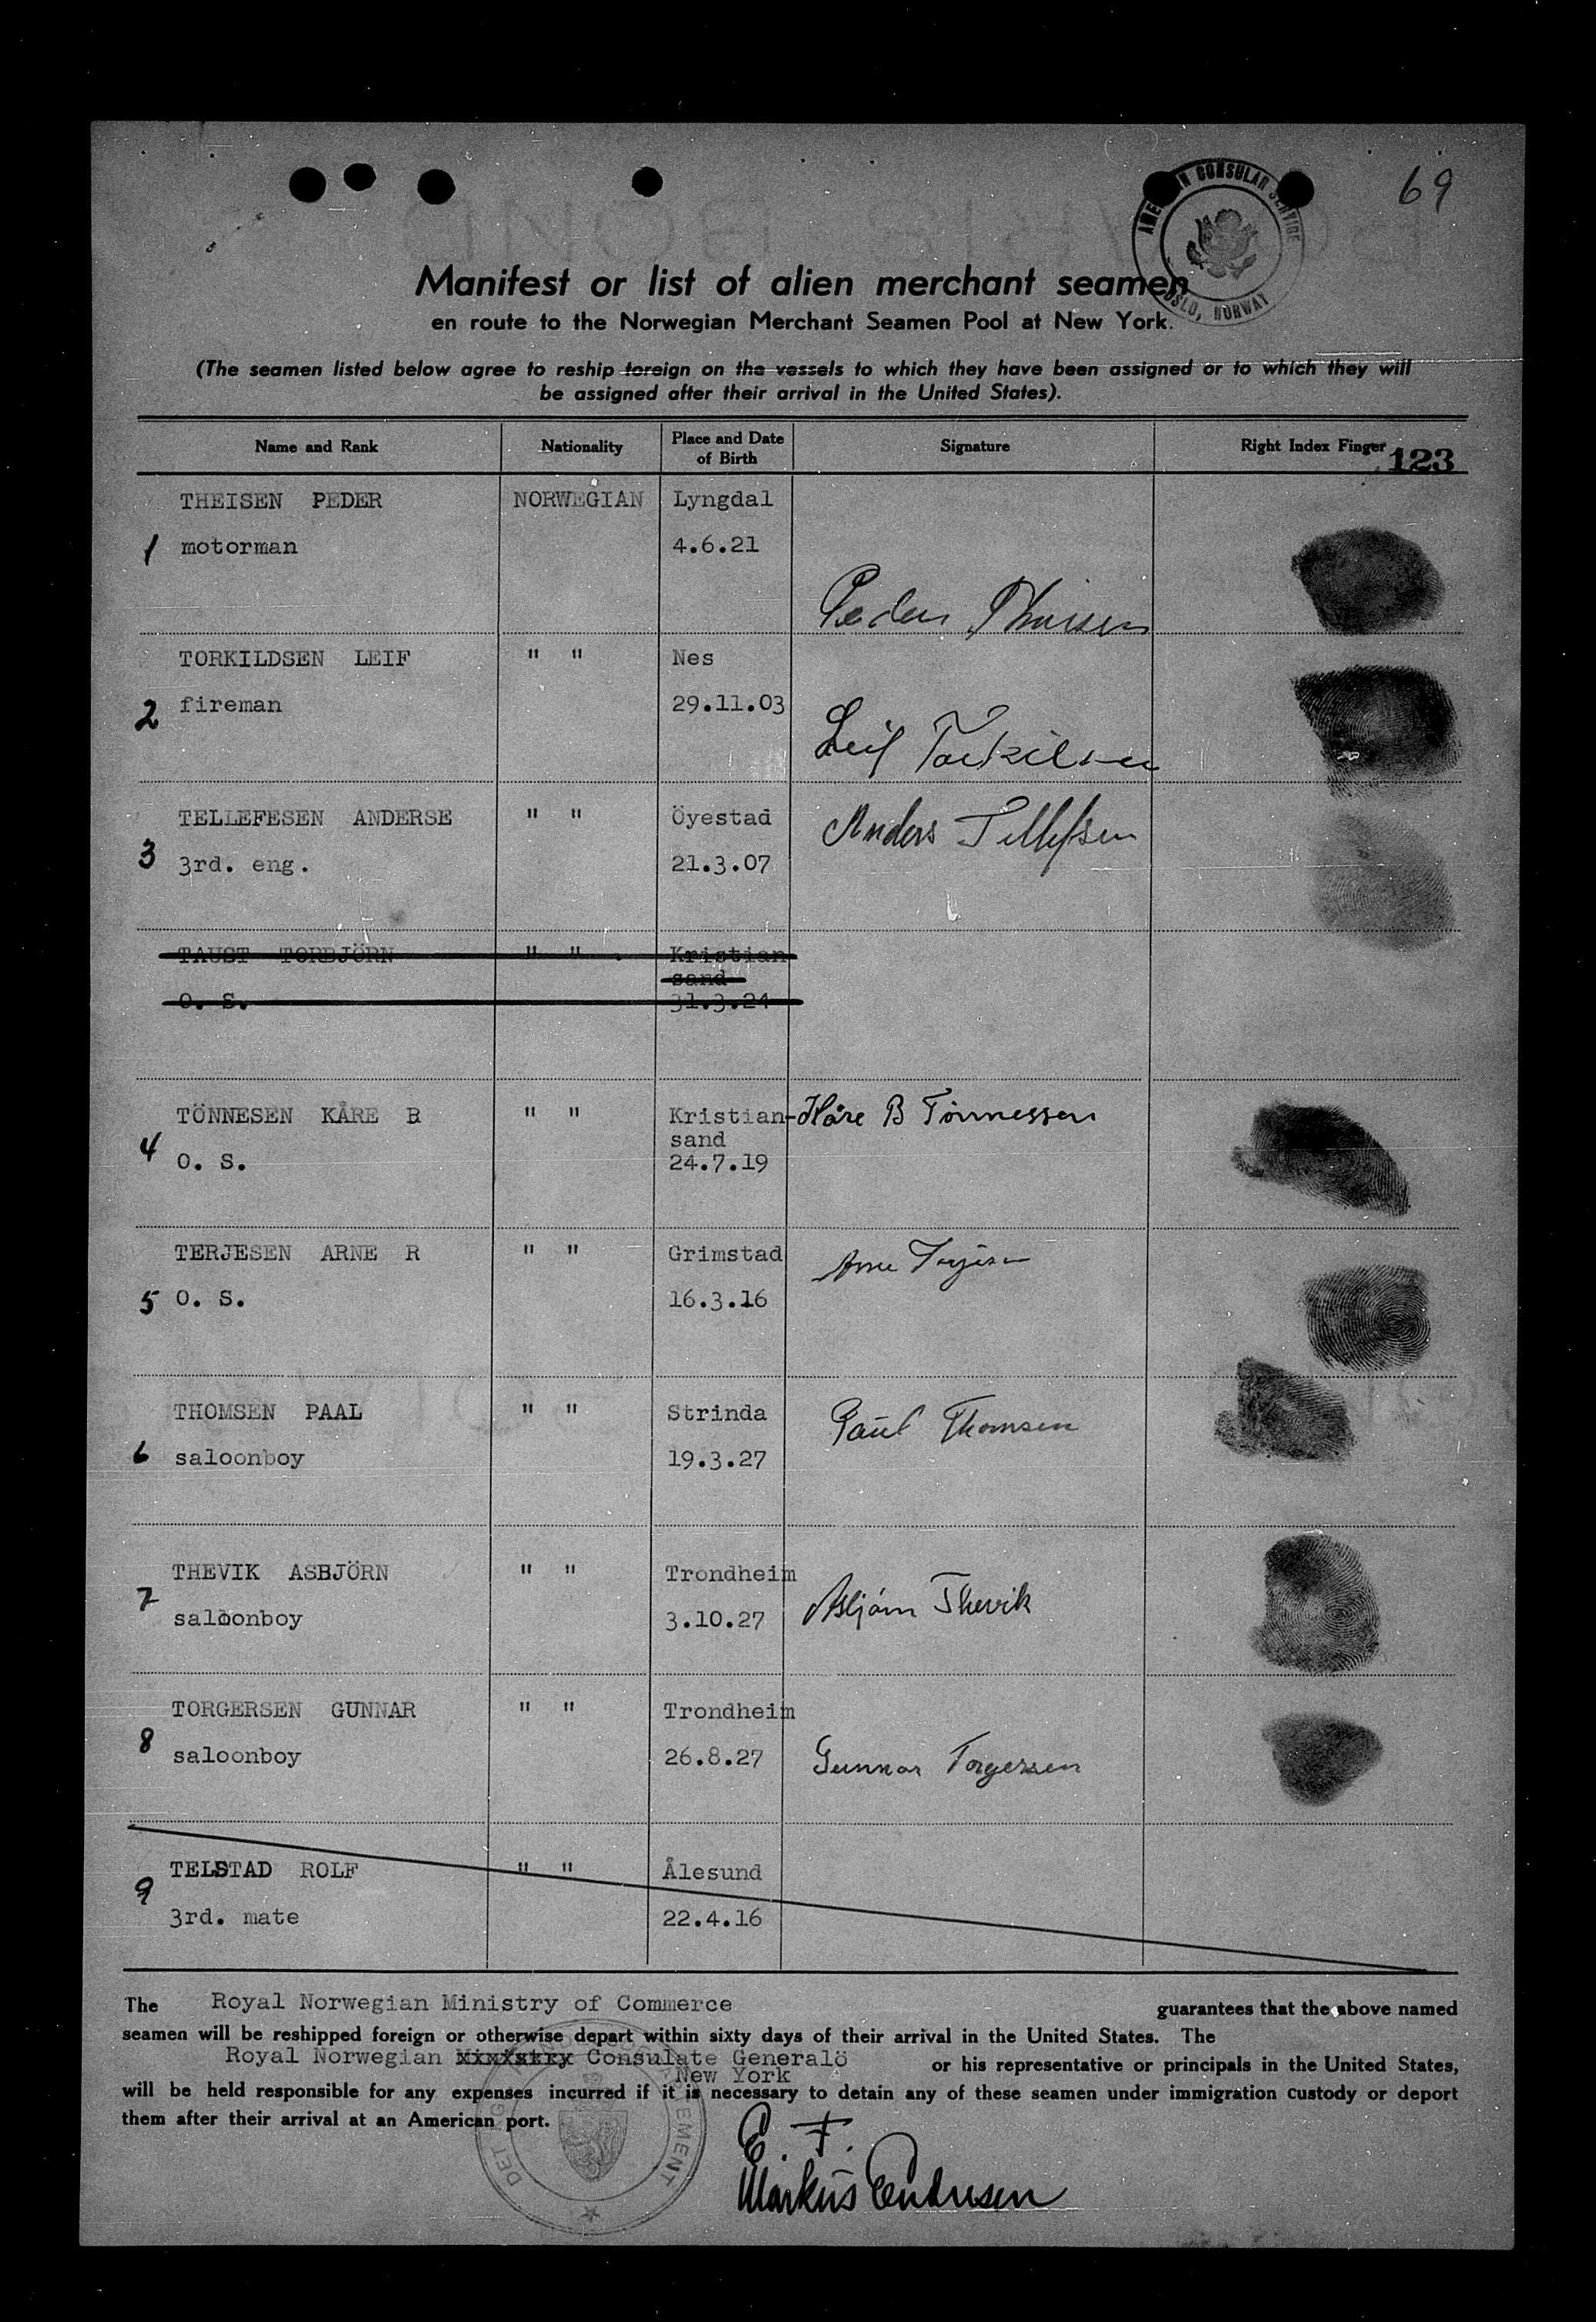 69
AMERICAN CONSULAR SERVICE
OSLO, NORWAY
Manifest or list of alien merchant seamen
en route to the Norwegian Merchant Seamen Pool at New York.
(The seamen listed below agree to reship foreign on the vessels to which they have been assigned or to which they will
be assigned after their arrival in the United States).
Name and Rank Nationality Place and Date of Birth Signature Right Index Finger 123
THEISEN PEDER NORWEGIAN Lyngdal
1 motorman 4.6.21
Peder Theisen
TORKILDSEN LEIF " " Nes
2 fireman 29.11.03
Leif Torkilsen
TELLEFESEN ANDERSE " " Öyestad Anders Tellefsen
3 3rd. eng. 21.3.07
TAUST TORBJÖRN " " Kristian
sand
O. S. 31.3.24
TÖNNESEN KÅRE B " " Kristian- Kåre B Tönnessen
sand
4 O. S. 24.7.19
TERJESEN ARNE R " " Grimstad Arne Terjesen
5 O. S. 16.3.16
THOMSEN PAAL " " Strinda Paul Thomsen
6 saloonboy 19.3.27
THEVIK ASBJÖRN " " Trondheim
7 saloonboy 3.10.27 Asbjörn Thevik
TORGERSEN GUNNAR " " Trondheim
8 saloonboy 26.8.27 Gunnar Torgersen
TELSTAD ROLF " " Ålesund
9 3rd. mate 22.4.16
The Royal Norwegian Ministry of Commerce guarantees that the above named
seamen will be reshipped foreign or otherwise depart within sixty days of their arrival in the United States. The
Royal Norwegian Consulate Generalö or his representative or principals in the United States,
New York
will be held responsible for any expenses incurred if it is necessary to detain any of these seamen under immigration custody or deport
them after their arrival at an American port.
E. F.
Markus Endresen